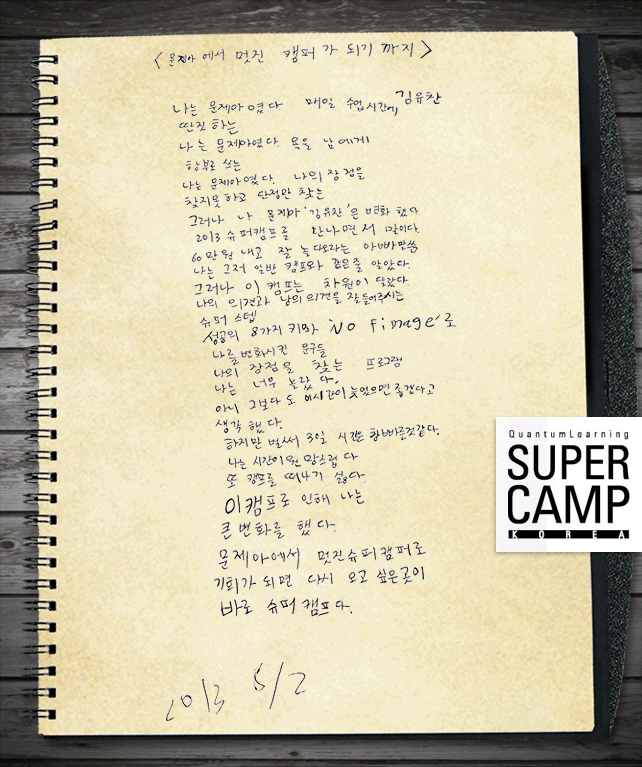 <문제아에서 멋진 캠퍼가 되기까지>
김유찬
나는 문제아였다 매일 수업시간에
딴짓하는
나는 문제아였다. 욕을 남에게
함부로 쓰는
나는 문제아였다. 나의 장점을
찾지못하고 단점만 찾는
그러나 나 문제아 '김유찬'은 변화했다
2013 슈퍼캠프를 만나면서 말이다.
60만원 내고 잘 놀다오라는 아빠말씀
나는 그저 일반 캠프와 같은줄 알았다.
그러나 이 캠프는 차원이 달랐다.
나의 의견과 남의의견을 잘들어주시는
슈퍼스텝
성공의 8가지 키와 'No fimage'로
나를 변화시킨 문구들
나의 장점을 찾는 프로그램
나는 너무 놀랐다.
아니 그보다도 이시간이 늦었으면 좋겠다고
생각했다.
하지만 벌써 3일 시간은 참빠른것같다.
나는 시간이 원망스럽다
또 캠프를 떠나기 싫다.
이캠프로 인해 나는
큰변화를 했다.
문제아에서 멋진슈퍼캠퍼로
기회가 되면 다시 오고 싶은곳이
바로 슈퍼캠프다.
2013 5/2
QuantumLearning
SUPER
CAMP
KOREA